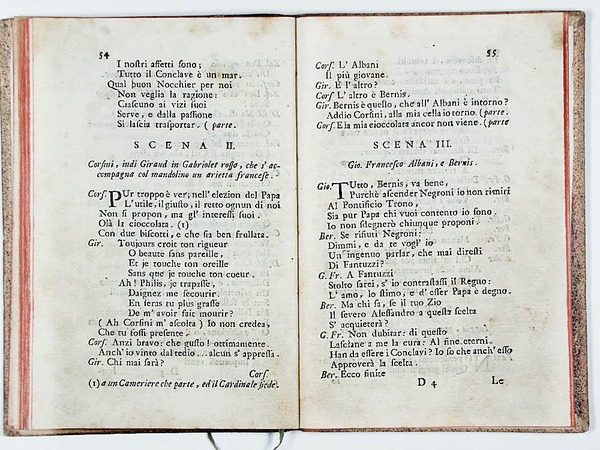 54
I nostri affetti sono;
Tutto il Conclave è un mar.
Qual buon Nocchier per noi
Non veglia la ragione:
Ciascuno ai vizi suoi
Serve, e dalla passione
Si lascia trasportar. ( parte.
SCENA II.
Corsini, indi Giraud in Gabriolet rosso, che s' ac-
compagna col mandolino un arietta francese.
Cors. PUr troppo è ver; nell' elezion del Papa
L'utile, il giusto, il retto ognun di noi
Non si propon, ma gl' interessi suoi.
Olà la cioccolata, (1)
Con due biscotti, e che sia ben frullata.
Gir. Toujours croit ton rigueur
O beaute sans pareille,
Et je touche ton oreille
Sans que je touche ton coeur.
Ah! Philis, je trapasse,
Daignez me secourir.
En seras tu plus grasse
De m' avoir fait mourir?
( Ah Corsini m' ascolta ) Io non credea,
Che tu fossi presente.
Cors. Anzi bravo: che gusto! ottimamente.
Anch' io vinto dal tedio ... alcun s' appressa.
Gir. Chi mai sarà?
Cors.
(1) a un Cameriere che parte, ed il Cardinale siede.
55
Cors. L' Albani
Il più giovane.
Gir. E l' altro?
Cors L' altro è Bernis.
Gir. Bernis è quello, che all' Albani è intorno?
Addio Corsini, alla mia cella io torno. (parte.
Cors. E la mia cioccolata ancor non viene. (parte
SCENA III.
Gio. Francesco Albani, e Bernis.
Gio. TUtto, Bernis, va bene,
Purchè ascender Negroni io non rimiri
Al Pontificio Trono,
Sia pur Papa chi vuoi contento io sono.
Io non sdegnerò chiunque proponi.
Ber. Se rifiuti Negroni:
Dimmi, e da te vogl' io
Un ingenuo parlar, che mai diresti
Di Fantuzzi?
G. Fr. A Fantuzzi
Stolto sarei, s' io contrastassi il Regno:
L' amo, lo stimo, e d' esser Papa è degno.
Ber. Ma chi sa, se il tuo Zio
Il severo Alessandro a questa scelta
S' acquieterà?
G. Fr. Non dubitar: di questo
Lasciane a me la cura: Al fine. eterni.
Han da essere i Conclavi? Io so che anch' esso
Approverà la scelta.
Ber. Ecco finite
D 4 Le